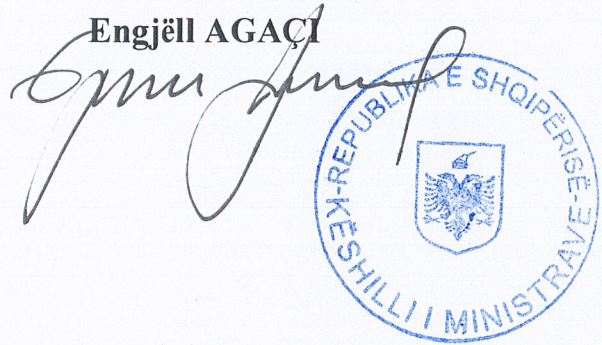 Engjëll AGAÇI
REPUBLIKA E SHQIPËRISË-KËSHILLI I MINISTRAVE-